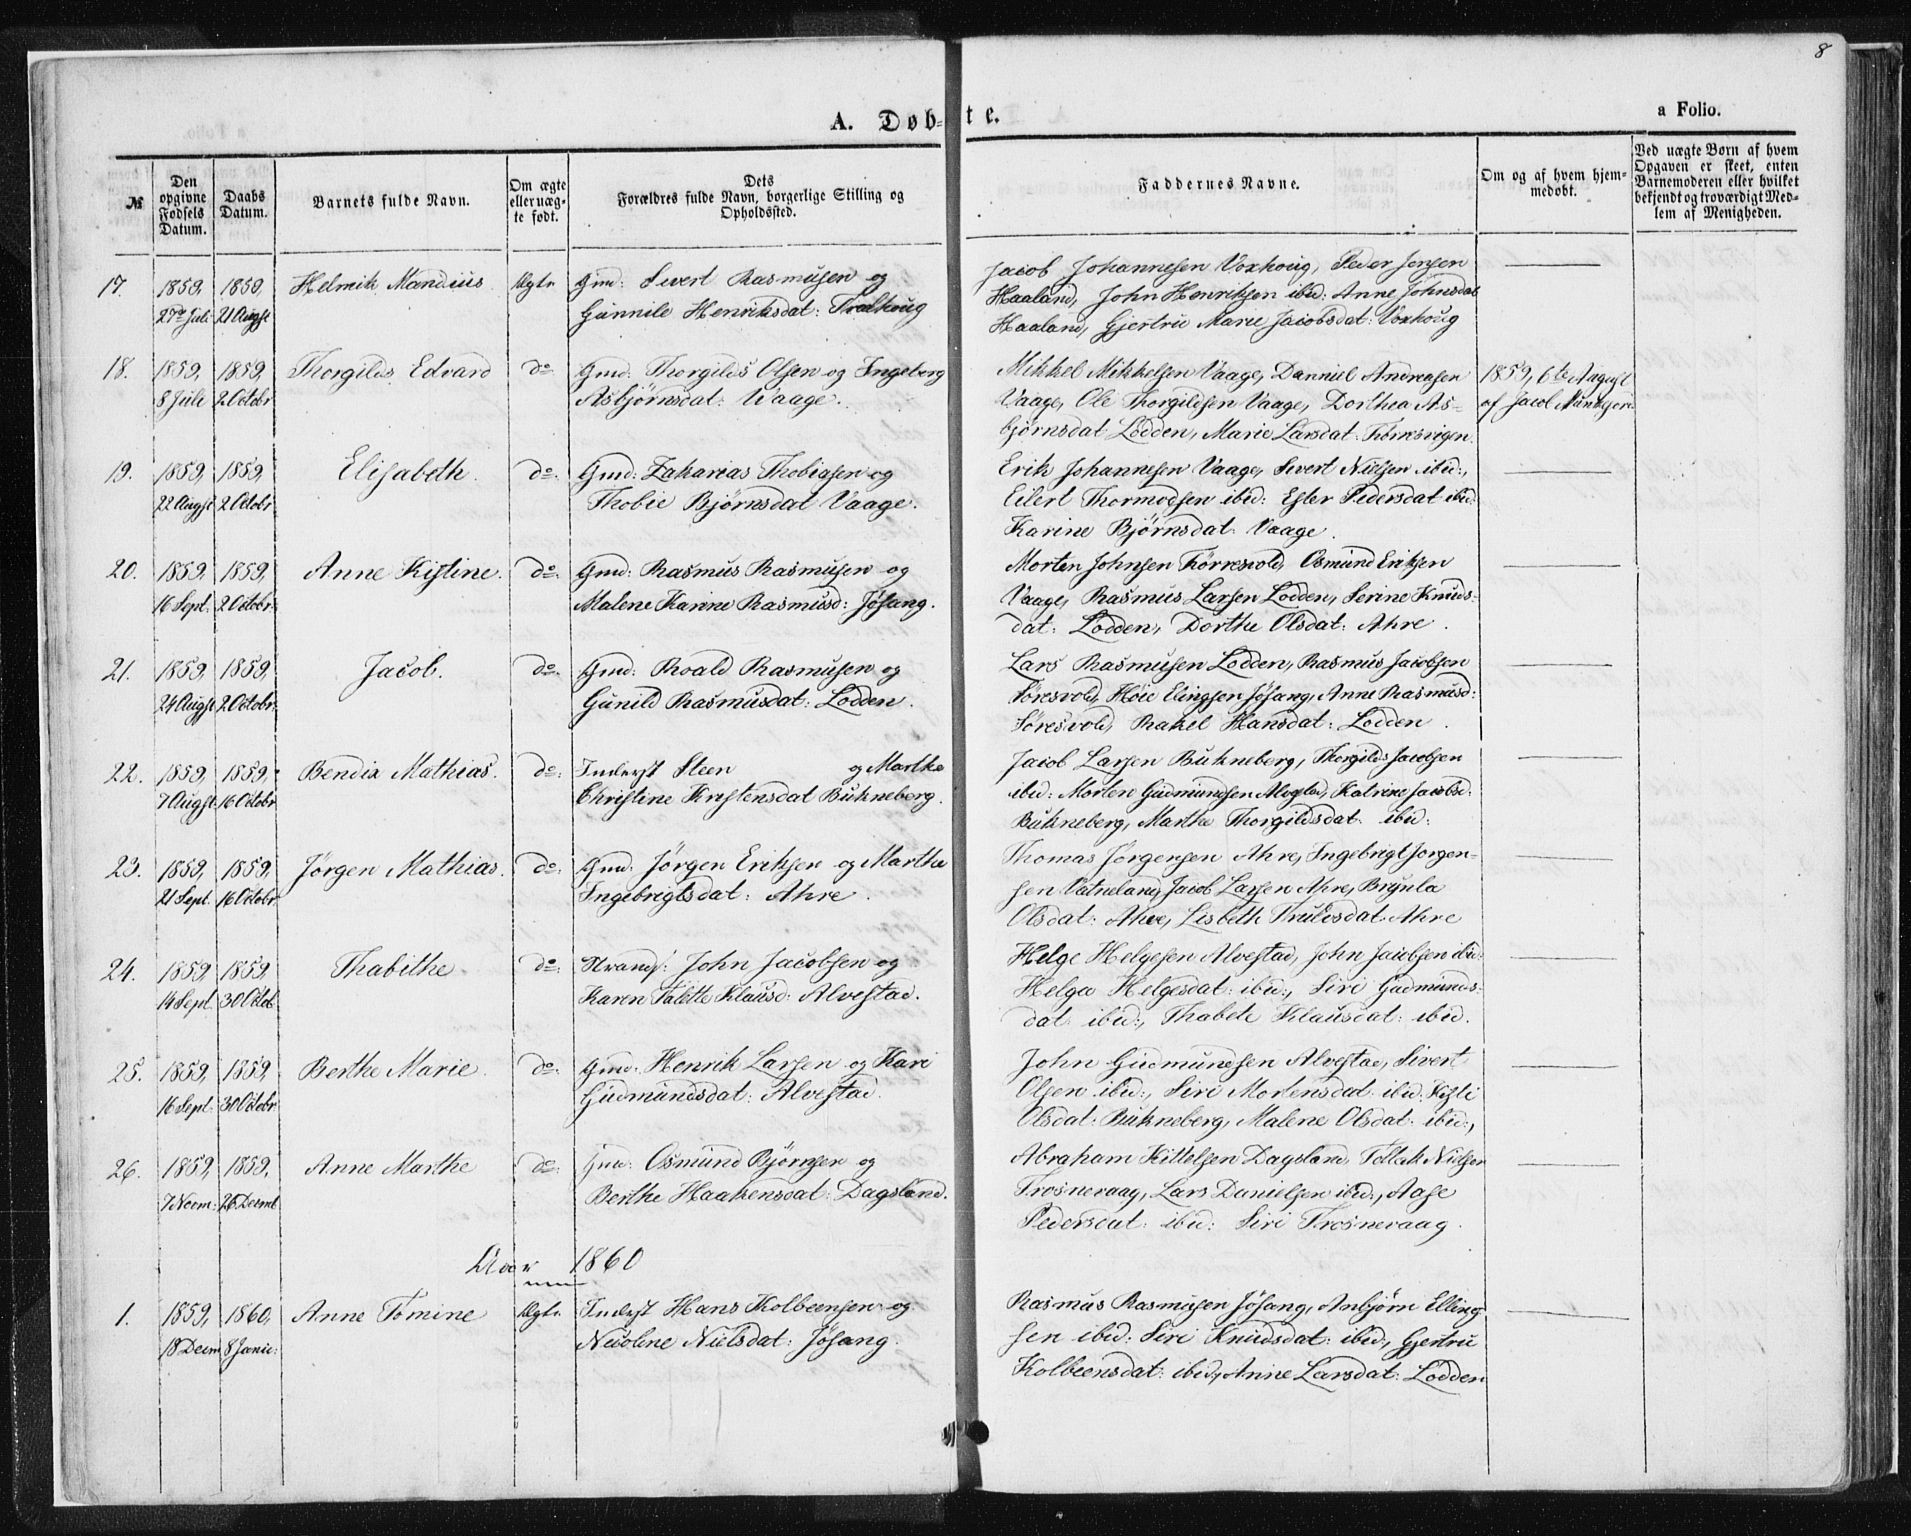 8
A. Døbte.
a Folio.
№
Den opgivne Fødsels Datum.
Daabs Datum.
Barnets fulde Navn.
Om ægte eller uægte født.
Dets Forældres fulde Navn, borgerlige Stilling og Opholdssted.
Faddernes Navne.
Om og af hvem hjemmedøbt.
Ved uægte Børn af hvem Opgaven er skeet, enten Barnemoderen eller hvilket bekjendt og troværdigt Medlem af Menigheden.
17. 1859, 1859, Helmik Mandius Ægte Gmd: Sivert Rasmusen og Jacob Johannesen Voxhoug, Peder Jensen
27de Juli 21 Augst Gunnile Henriksdat: Haaland, John Henriksen ibid: Anne Johnsdat
Haaland, Gjertru Marie Jacobsdat: Voxhoug
18. 1859, 1859, Thorgils Edvard do Gmd: Thorgils Olsen og Ingeberg Mikkel Mikkelsen Vaage, Danniel Andreasen 1859, 6te August
8 Juli 2 Octobr Asbjørnsdat: Vaage. Vaage, Ole Thorgildsen Vaage, Dorthea As- af Jacob
bjørnsdat: Lodden, Marie Larsdat:
19. 1859, 1859, Elisabeth. do Gmd: Zakarias Thobiasen og Erik Johannesen Vaage, Sivert Nielsen ibid:,
22 Augst 2 Octobr Thobie Bjørnsdat Vaage. Eilert Thormodsen ibid: Ester Pedersdat ibid:
Karine Bjørnsdat: Vaage.
20. 1859, 1859, Anne Kistine. do Gmd: Rasmus Rasmusen og Morten Johnsen Osmund Eriksen
16 Sept. 2 Octobr. Malene Karine Rasmusd: Jøsang. Vaage, Rasmus Larsen Lodden, Serine Knuds-
dat: Lodden, Dorthe Olsdat: Ahre.
21. 1859, 1859, Jacob. do Gmd: Roald Rasmusen og Lars Rasmusen Lodden, Rasmus Jacobsen
24 Augst 2 Octobr. Gunild Rasmusdat: Lodden. Søresvold, Høie Elingsen Jøsang, Anne Rasmusd:
Søresvold, Rakel Hansdat: Lodden.
22. 1859, 1859, Bendix Mathias. do Inderst Steen og Marthe Jacob Larsen Bukneberg, Thorgils Jacobsen
7 Augst. 16 Octobr Christine Kristensdat Bukneberg. ibid: Morten Gudmundsen Katrine Jacobsd:
Bukneberg, Marthe Thorgildsdat: ibid:
23. 1859, 1859, Jørgen Mathias. do Gmd: Jørgen Eriksen og Martha Thomas Jørgensen Ahre, Ingebrigt Jørgen-
21 Sept. 16 Octobr Ingebrigtsdat: Ahre. sen Vatneland, Jacob Larsen Ahre, Brynla
Olsdat: Ahre, Lisbeth Truledsdat: Ahre
24. 1859 1859, Thabithe do Strands: John Jacobsen og Helge Helgesen Alvestad, John Jacobsen ibid:
14 Sept. 30 Octob. Karen Talette Klausd: Alvestad. Helga Helgesdat: ibid:, Siri Gudmunds-
dat: ibid:, Thabete Klausdat: ibid.
25. 1859, 1859, Berthe Marie do Gmd: Henrik Larsen og Kari John Gudmundsen Alvestad, Sivert
16 Sept. 30 Octobr Gudmundsdat: Alvestad. Olsen ibid:, Siri Mortensdat: ibid:
Olsdat: Bukneberg, Malene Olsdat: ibid:,
26. 1859, 1859, Anne Marthe do Gmd: Osmund Bjørnsen og Abraham Kittelsen Dagsland, Tollak Nielsen
7 Novm: 26 Decmb Berthe Haakensdat: Dagsland. Trosnevaag, Lars Danielsen ibid:, Aase
Pedersdat: ibid: Siri Trosnevaag.
Aar 1860
1. 1859, 1860, Anne Tomine Ægte Inderst Hans Kolbeensen og Rasmus Rasmusen Jøsang, Anbjørn Elling-
18 Decm 8 Janu: Nicoline Nielsdat: Jøsang. sen ibid: Siri Knudsdat: ibid:, Gjertru
Kolbeensdat: ibid:, Anne Larsdat: Lodden